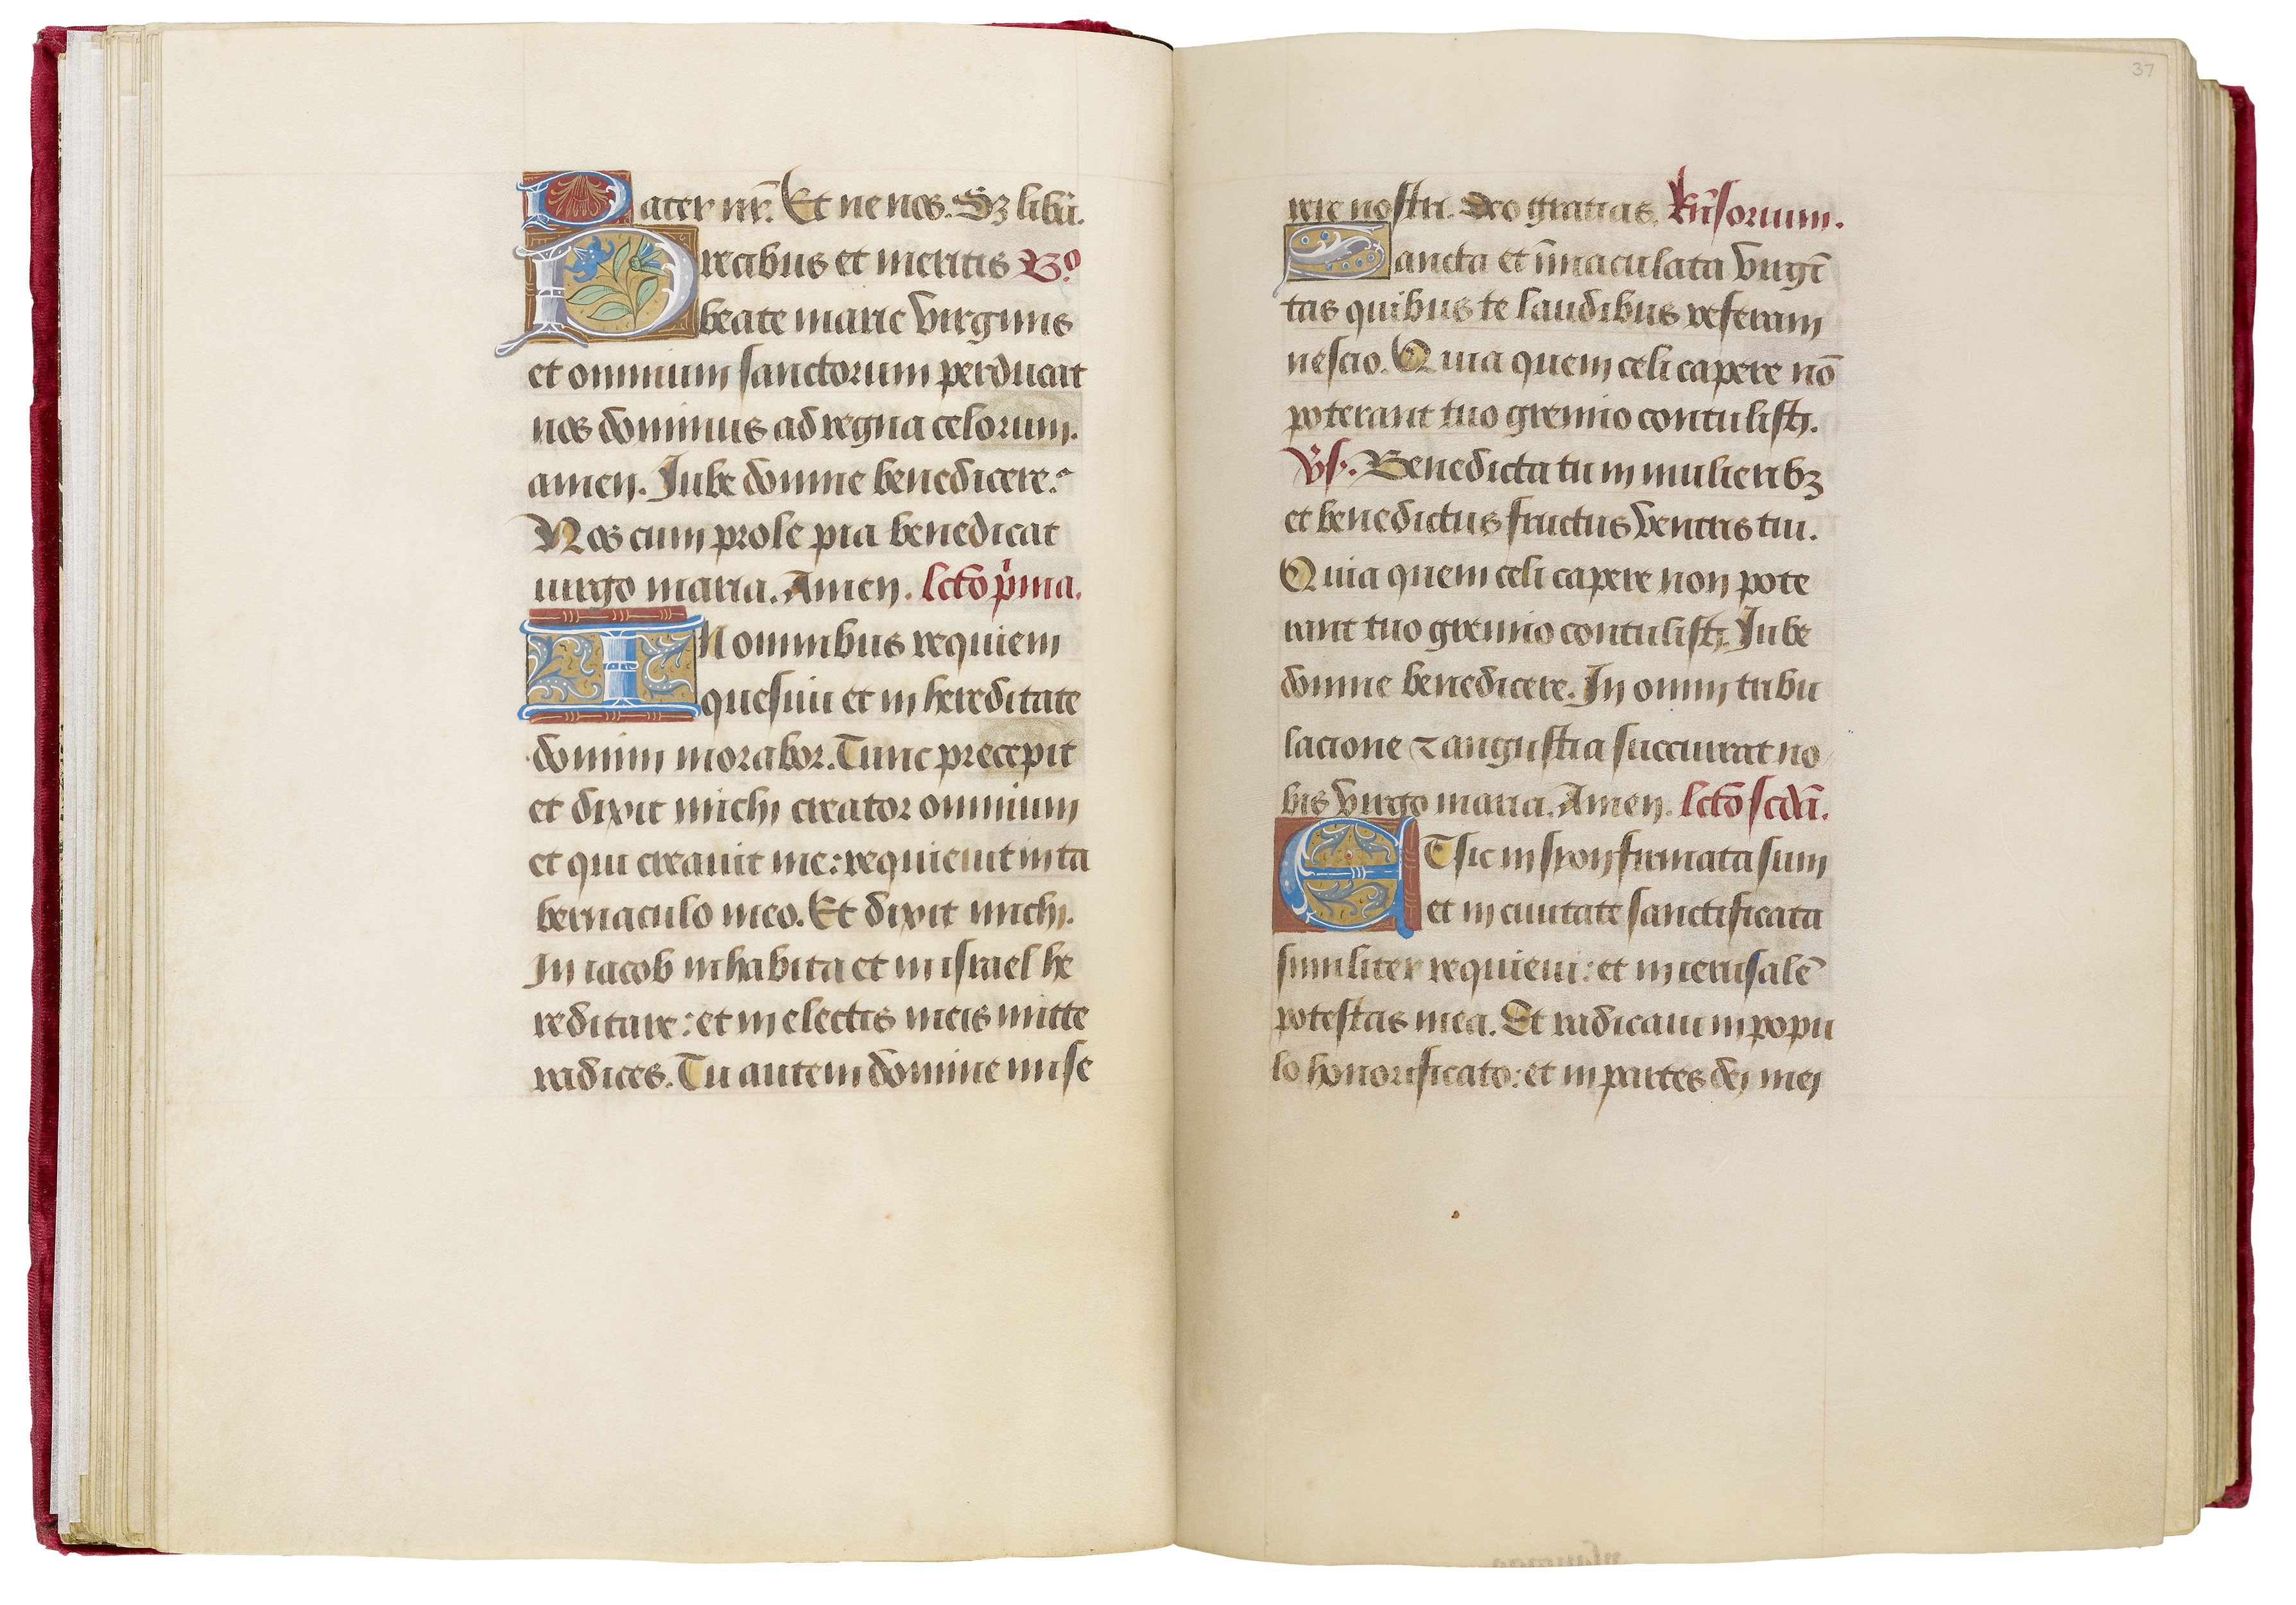 Pater nr̄. Et ne nos. Sȝ libã.
Precibus et meritis B.º
beate marie virginis
et omnium sanctorum perducat
nos dominus ad regna celorum.
amen. Iube domne benedicere.
Nos cum prole pia benedicat
uirgo maria. Amen. lcĩo pĩma.
IN omnibus requiem
quesiui et in hereditate
domini morabor. Tunc precepit
et dixit michi creator omnium
et qui creauit me: requieuit in ta
bernaculo meo. Et dixit michi.
In iacob inhabita et in israel he
reditare: et in electis meis mitte
radices. Tu autem domine mise
37
rere nostri. Deo gratias. Rñsorium.
Sancta et ĩmaculata virgĩ
tas quibus te laudibus referam
nescio. Quia quem celi capere nõ
poterant tuo gremio contulisti.
v̄s. Benedicta tu in mulieribȝ
et benedictus fructus ventris tui.
Quia quem celi capere non pote
rant tuo gremio contulisti. Iube
domne benedicere. In omni tribu
lacione ⁊ angustia succurrat no
bis virgo maria. Amen. lcĩo scdã.
ET sic in syon firmata sum
et in ciuitate sanctificata
similiter requieui: et in ierusalē
potestas mea. Et radicaui in popu
lo honorificato: et in partes dei mei